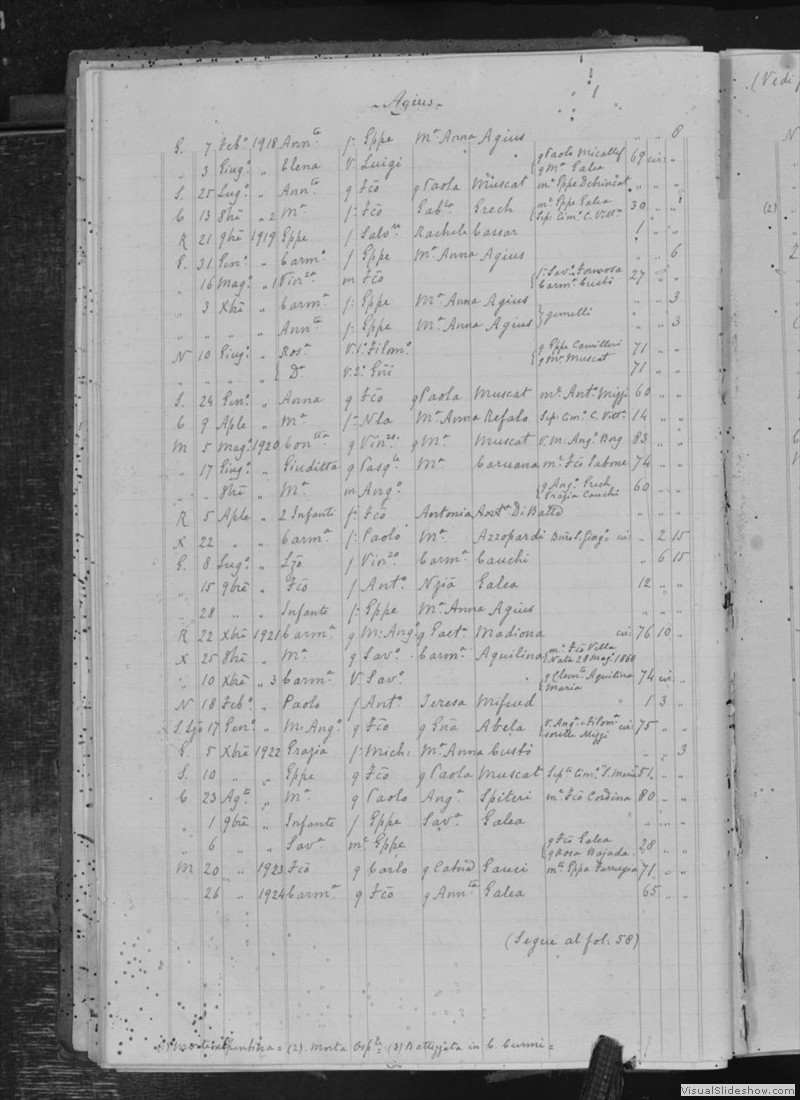 Agius
(Vedi
G. 7 Feb.º 1918 Ann.ta f. Gppe M.ª Anna Agius " " 8
" 3 Giug.º " Elena v. Luigi " { g Paolo Micallef g M.ª Galea 69 cir: "
S. 25 Lug.º " Ann.ta g Fco g Paola Muscat m.e Gppe Debrincat " " "
C 13 8bre " 2 M.ª f. Fco Gab.la Grech m.e Gppe Galea Sep. Cim.º C. Vitt.ª 30 " "
R 21 9bre 1919 Gppe f Salv.re Rachele Cassar 1 " "
G. 31 Gen.º " Carm.º f Gppe M.ª Anna Agius " " 6
" 16 Mag.º " 1 Vin.za m Fco { f. Sav.ª Formosa Carm.ª Custò 27 " "
" 3 Xbre " Carm.ª f. Gppe M.ª Anna Agius } gemelli " " 3
" " " " Ann.ta f. Gppe M.ª Anna Agius " " 3
N 10 Giug.º " Ros.ª V. 1.º Filom.º { g Gppe Camilleri g M.ª Muscat 71 " "
" " " " { D.ª V. 2.º Gni 71 " "
S. 24 Gen.º " Anna g Fco g Paola Muscat m.e Ant.º Mizzi 60 " "
C 9 Aple " M.ª f. Nla M.ª Anna Refalo Sep. Cim.º C. Vitt.ª 14 " "
M 5 Mag.º 1920 Con.tta g Vin.zo g M.ª Muscat V. M. Ang.º Borg 83 " "
" 17 Giug.º " Giuditta g Pasq.le M.ª Caruana m.e Fco Sabone 74 " "
" 8bre " M.ª m Ang.º { g Ang.º Grech Grazia Cauchi 60 " "
R 5 Aple " 2 Infanti f. Fco Antonia Di Batta
X 22 " " Carm.ª f. Paolo M.ª Azzopardi cir " 2 15
G. 8 Lug.º " Lzo f Vin.zo Carm.ª Cauchi " 6 15
" 15 9bre " Fco f Ant.º Nzia Galea 12 " "
" 28 " " Infante f. Gppe M.ª Anna Agius " " "
R 22 Xbre 1921 Carm.ª g M: Ang.º g Gaet.ª Madiona cir: 76 10 "
X 25 8bre " M.ª g Sav.º Carm.ª Aquilina { m.e Fco Vella Nata 28 Mag: 1868 " "
" 10 Xbre " 3 Carm.ª V. Sav.º " { g Clem.te Aquilina Maria 74 cir: "
N 18 Feb.º " Paolo f Ant.º Teresa Mifsud " 1 3 "
S. Lzo 17 Gen.º " M: Ang.º g Fco g Gna Abela { V. Ang.º e Filom.º sorelle Mizzi cir: 75 " "
G. 5 Xbre 1922 Grazia f. Mich: M.ª Anna Custò " " 3
S. 10 " " Gppe g Fco g Paola Muscat Sep.to Cim.º S. Maria 51 " "
C 23 Ag.to " M.ª g Paolo Ang.ª Spiteri m.e Fco Cordina 80 " "
" 1 9bre " Infante f Gppe Sav.ª Galea " " "
" 6 " " Sav.ª m.e Gppe { g Fco Galea g Rosa Bajada 28 " "
M 20 " 1923 Fco g Carlo g Catna Gauci m.to Gppa Farrugia 71 " "
26 " 1924 Carm.ª g Fco g Ann.ta Galea 65
(Segue al fol. 58)
= (2). Morta Osp.le (3) Battezzata in C. Curmi =
(2)
VisualSlideshow.com